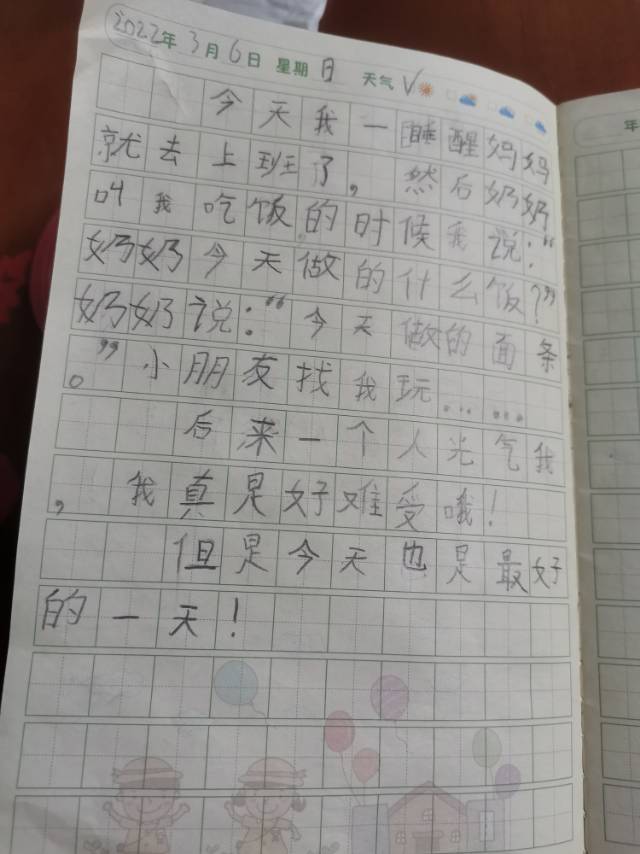 2022年3月6日 星期日 天气 √
今天我一睡醒妈妈
就去上班了，然后奶奶
叫我吃饭的时候我说：“
奶奶今天做的什么饭？”
奶奶说：“今天做的面条
。”小朋友找我玩……
后来一个人光气我
，我真是好难受哦！
但是今天也是最好
的一天！
年